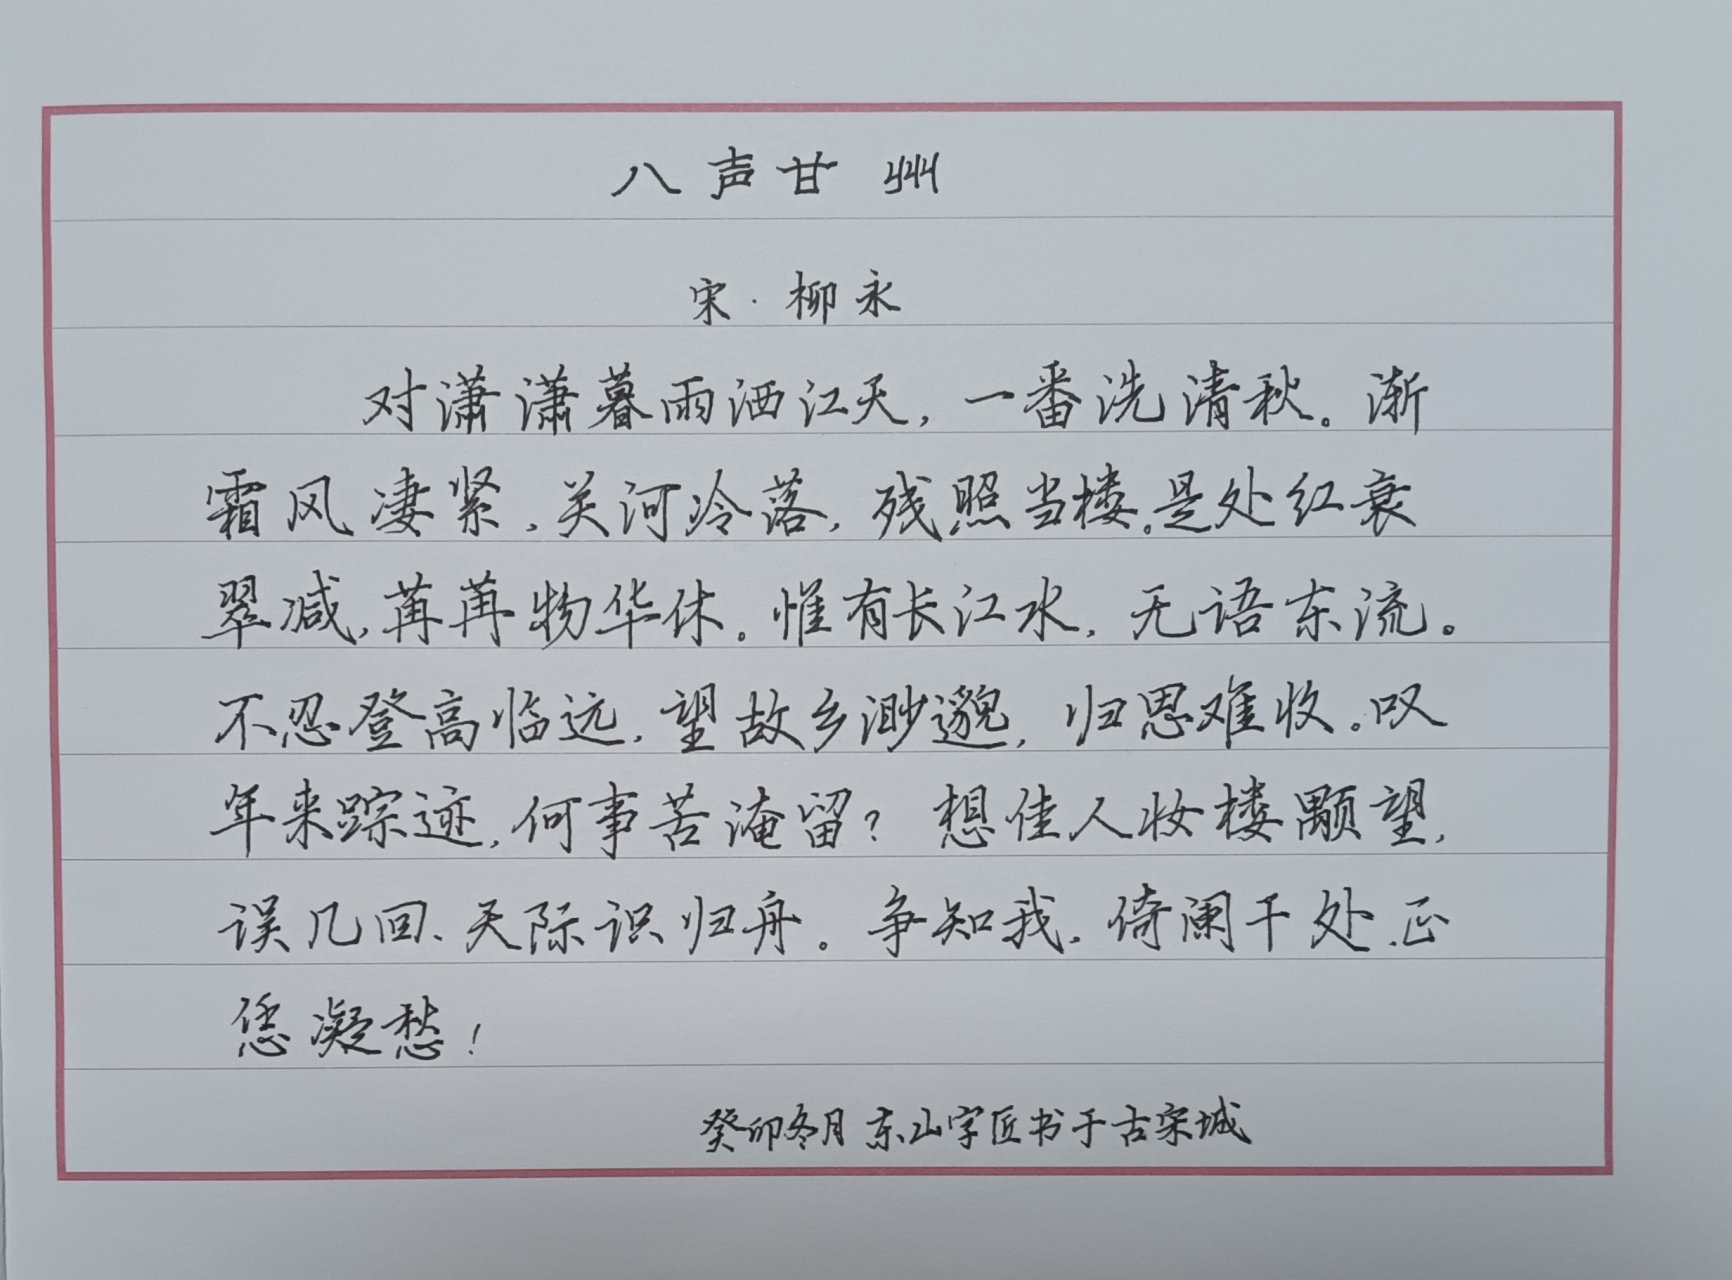 八声甘州
宋·柳永
对潇潇暮雨洒江天，一番洗清秋。渐
霜风凄紧，关河冷落，残照当楼。是处红衰
翠减，苒苒物华休。惟有长江水，无语东流。
不忍登高临远，望故乡渺邈，归思难收。叹
年来踪迹，何事苦淹留？想佳人妆楼颙望，
误几回、天际识归舟。争知我，倚阑干处，正
恁凝愁！
癸卯冬月东山字匠书于古宋城